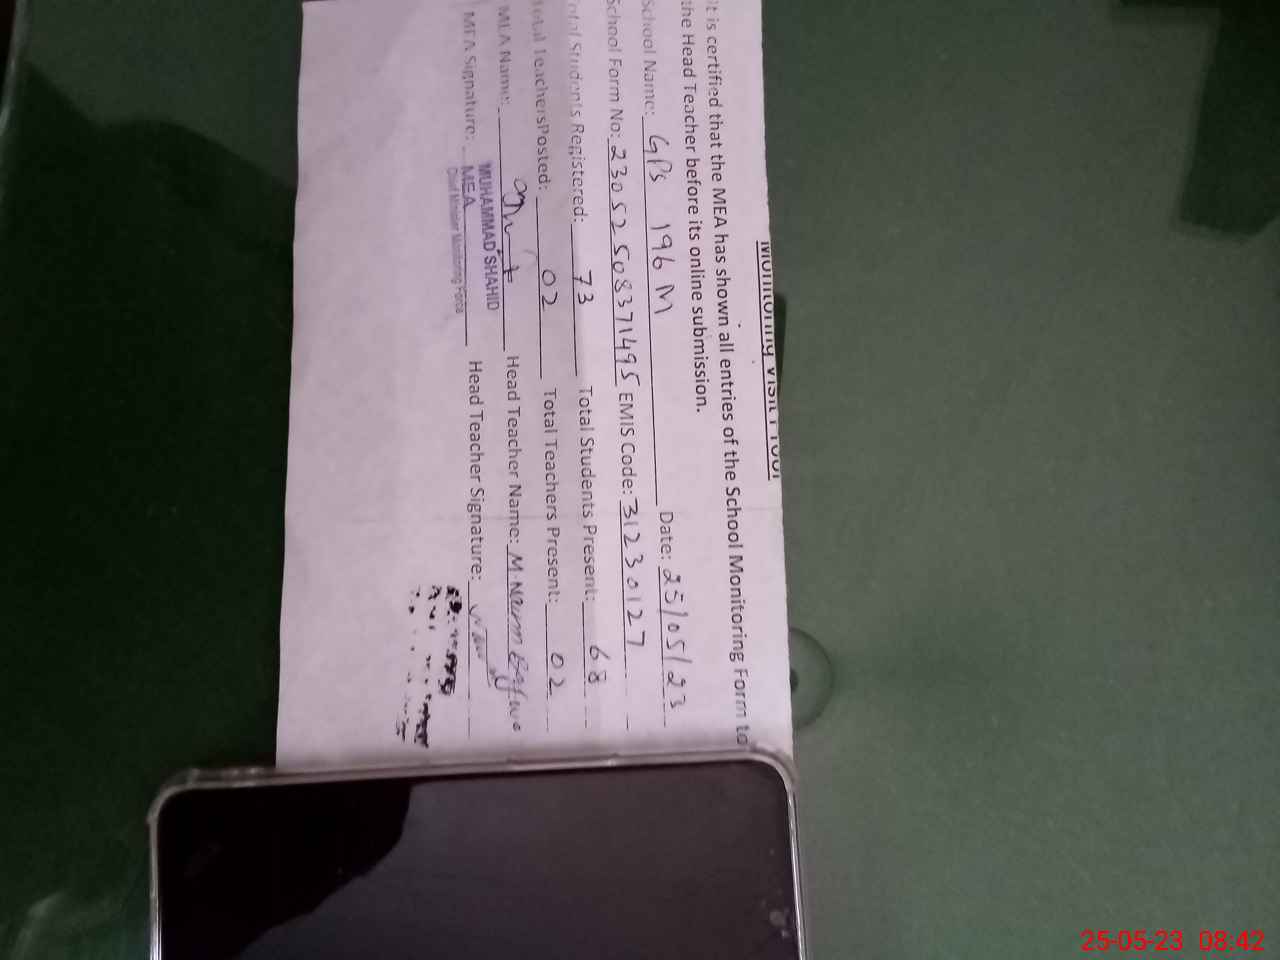 Monitoring Visit Proof
It is certified that the MEA has shown all entries of the School Monitoring Form to
the Head Teacher before its online submission.
School Name: GPS 196 M Date: 25/05/23
School Form No: 23052508371495 EMIS Code: 31230127
Total Students Registered: 73 Total Students Present: 68
Total TeachersPosted: 02 Total Teachers Present: 02
MEA Name: Head Teacher Name: M. Naeem
MUHAMMAD SHAHID
MEA Signature: MEA Head Teacher Signature:
Chief Minister Monitoring Force
25-05-23 08:42